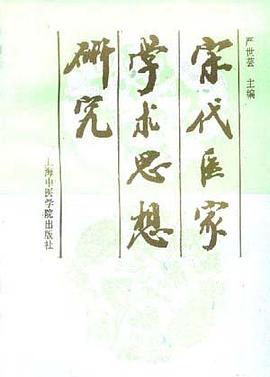 严世芸 主编
宋代医家
学术思想
研究
上海中医学院出版社